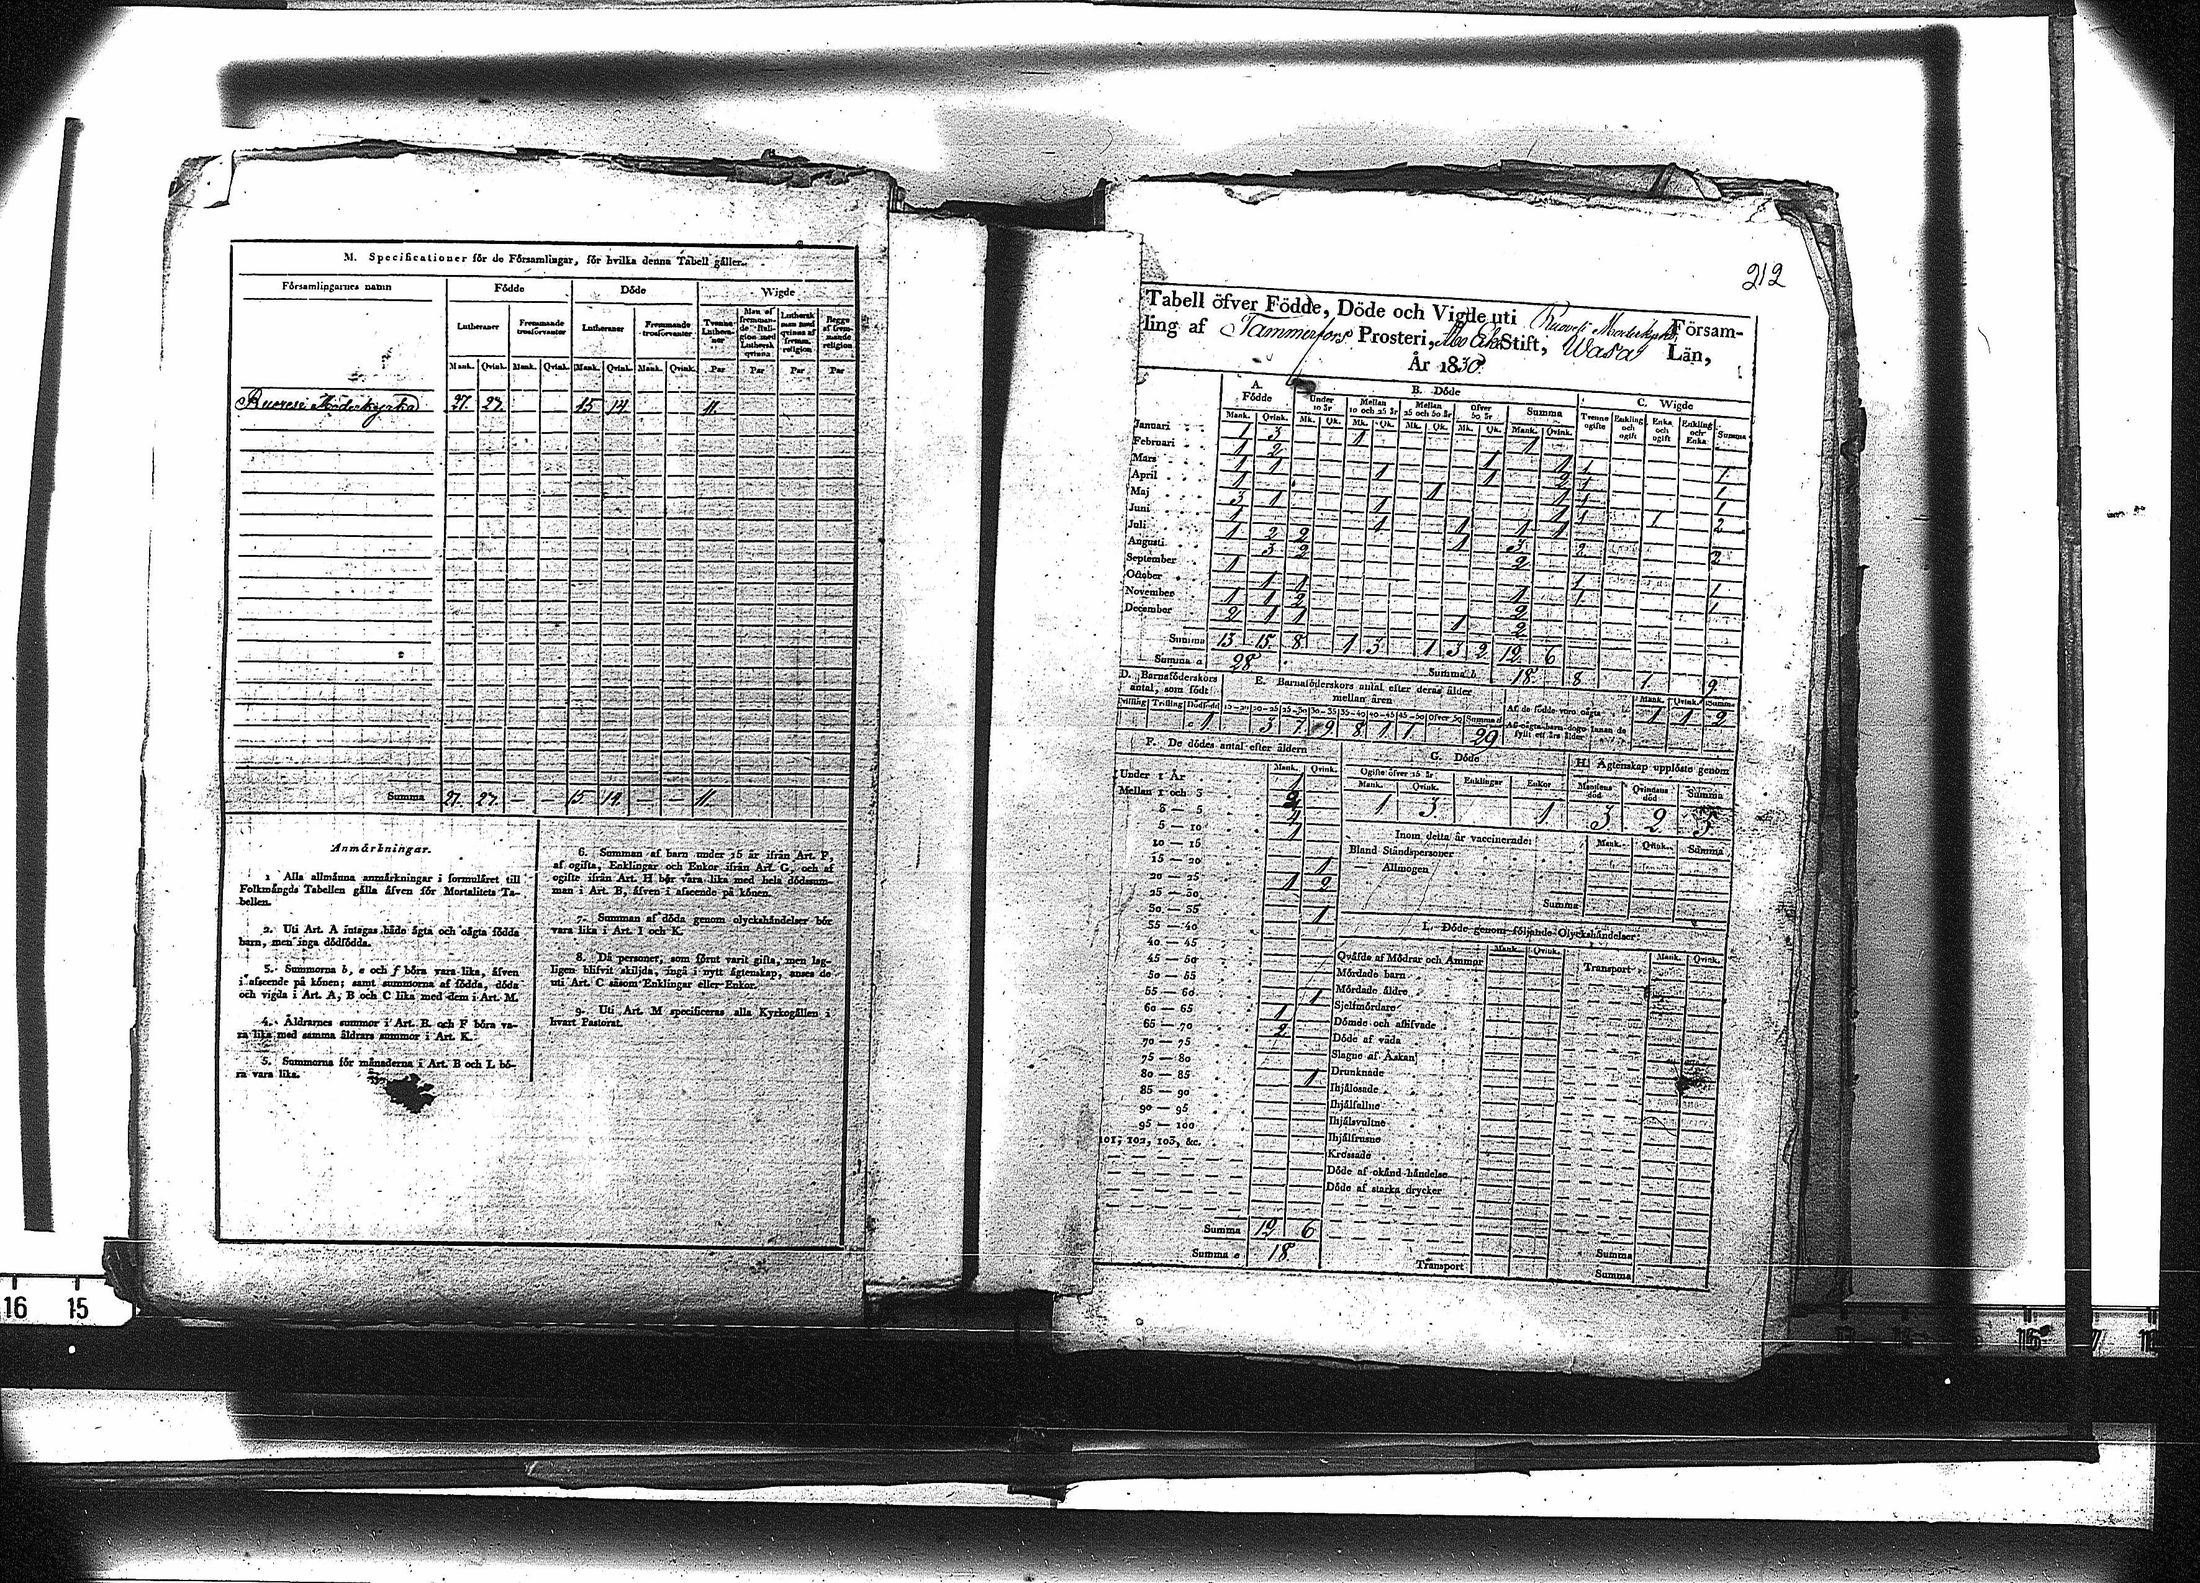 M. Specificationer för de Församlingar, för hvilka denna Tabell gäller.
Församlingarnes namn Födde Döde Wigde
Lutheraner Fremmande trosförvanter Lutheraner Fremmande trosförvanter Tvenne Lutheraner Man af fremmande Religion med Luthersk qvinna Luthersk man med qvinna af fremm. religion Begge af fremmande religion
Mank. Qvink. Mank. Qvink. Mank. Qvink. Mank. Qvink. Par Par Par Par
Ruovesi Moderkyrka 27. 27. 15 14. 11.
Summa 27. 27. — — 15. 14. — — 11.
Anmärkningar.
1 Alla allmänna anmärkningar i formuläret till
Folkmängds Tabellen gälla äfven för Mortalitets Ta-
bellen.
2. Uti Art. A intagas både ägta och oägta födda
barn, men inga dödfödda.
3. Summorna b, e och f böra vara lika, äfven
i afseende på könen; samt summorna af födda, döda
och vigda i Art. A, B och C lika med dem i Art. M.
4. Åldrarnes summor i Art. B och F böra va-
ra lika med samma åldrars summor i Art. K.
5. Summorna för månaderna i Art. B och L bö-
ra vara lika.
6. Summan af barn under 15 år ifrån Art. F,
af ogifta, Enklingar och Enkor ifrån Art. G, och af
ogifte ifrån Art. H bör vara lika med hela dödssum-
man i Art. B, äfven i afseende på könen.
7. Summan af döda genom olyckshändelser bör
vara lika i Art. I och K.
8. Då personer, som förut varit gifta, men lag-
ligen blifvit skiljda, ingå i nytt ägtenskap, anses de
uti Art. C såsom Enklingar eller Enkor.
9. Uti Art. M specificeras alla Kyrkogällen i
hvart Pastorat.
212
Tabell öfver Födde, Döde och Vigde uti Ruovesi Moderkyrko Försam-
ling af Tammerfors Prosteri, Åbo Stift, Wasa Län,
År 1830
A. Födde B. Döde C. Wigde
Under 10 år Mellan 10 och 25 år Mellan 25 och 50 år Öfver 50 år Summa Tvenne ogifte Enkling och ogift Enka och ogift Enkling och Enka Summa
Mank. Qvink. Mk. Qk. Mk. Qk. Mk. Qk. Mk. Qk. Mank. Qvink.
Januari 1 3 1 1
Februari 1 2 1 1 1 1
Mars 1 1 1 1 2 1 1
April 1 1 1 1 1
Maj 3 1 1 1 1 1 2
Juni 1 1 1 1 1
Juli 1 2 2 1 3 2 2
Augusti 3 2 2
September 1 1 1
October 1 1 1 1 1
November 1 1 2 2
December 2 1 1 1 2
Summa 13 15 8 1 3 1 3 2 12 6
Summa a 28 Summa b 18 8 1. 9
D. Barnaföderskors antal, som födt
E. Barnaföderskors antal efter deras ålder
mellan åren
Tvilling Trilling Dödfödd 20—25 25—30 30—35 35—40 40—45 45—50 öfver 50 Summa
1 3 7 9 8 1 1 29
Af de födde voro oägta Mank. Qvink. Summa
1 1 2
Af oägta barn dogo innan de
fyllt ett års ålder
F. De dödes antal efter åldern
Mank. Qvink.
Under 1 År 1
Mellan 1 och 3 2
3 — 5 4
5 — 10 1
10 — 15
15 — 20 1
20 — 25 1 2
25 — 30
30 — 35 1
35 — 40
40 — 45
45 — 50
50 — 55
55 — 60 1
60 — 65 1
65 — 70 2
70 — 75
75 — 80
80 — 85 1
85 — 90
90 — 95
95 — 100
101, 102, 103, &c.
Summa 12 6
Summa e 18
G. Döde
Ogifte öfver 15 år Enklingar Enkor
Mank. Qvink.
1 3 1
H. Ägtenskap upplöste genom
Mannens död Qvinnans död Summa
3 2 5
Inom detta år vaccinerade: Mank. Qvink. Summa
Bland Ståndspersoner
Allmogen
Summa
I. Döde genom följande Olyckshändelser:
Mank. Qvink. Transport Mank. Qvink.
Qväfde af Mödrar och Ammor
Mördade barn
Mördade äldre
Sjelfmördare
Dömde och aflifvade
Döde af våda
Slagne af Åskan
Drunknade
Ihjälosade
Ihjälfallne
Ihjälsvultne
Ihjälfrusne
Krossade
Döde af okänd händelse
Döde af starka drycker
Transport
Summa
Summa
16 15